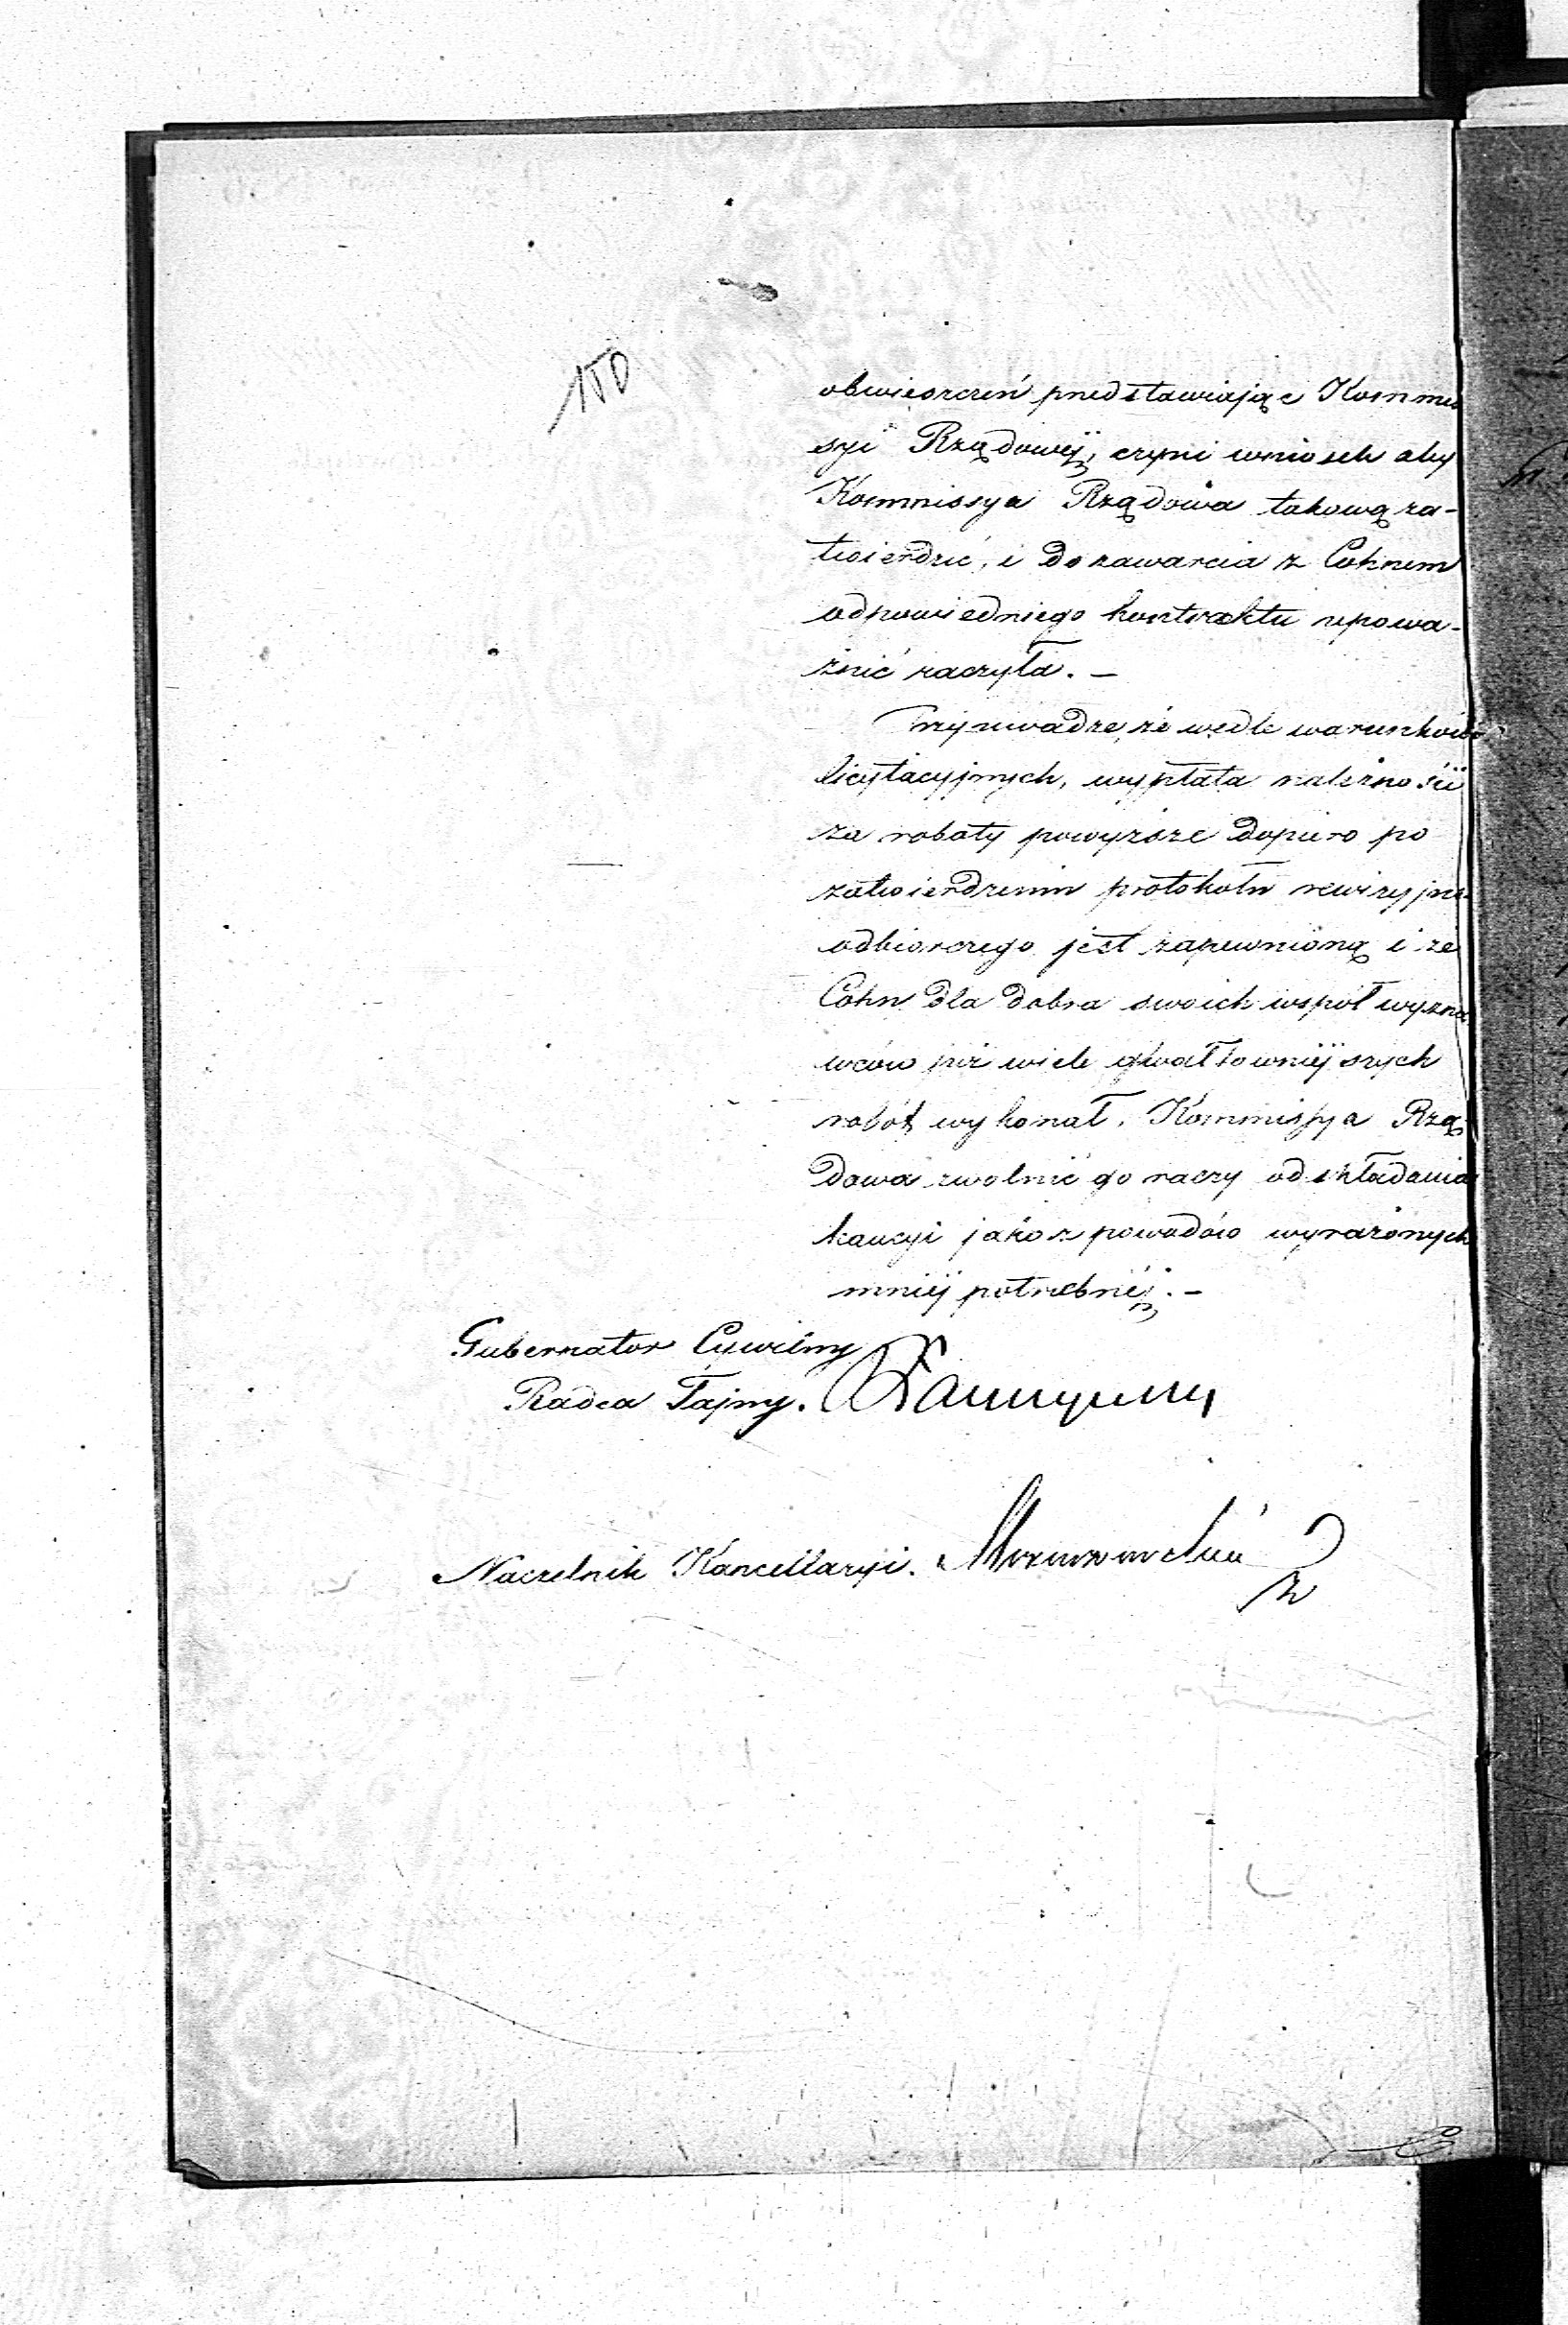 150
obwieszczeń przedstawiając Kommis
syi Rządowéj, czyni wniosek aby
Kommissya Rządowa takową za-
twierdzić, i do zawarcia z Cohnem
odpowiedniego kontraktu upowa-
żnić raczyła. —
Przy uwadze, że wedle warunków
licytacyjnych, wypłata należności
za roboty powyższe dopiero po
zatwierdzeniu protokołu rewizyjno
odbiorczego jest zapewnioną i że
Cohn dla dobra swoich współ wyzna
wców już wiele gwałtowniéjszych
robót wykonał, Kommissya Rzą
dowa zwolnić go raczy od składania
kaucyi jako z powodów wyrażonych
mniéj potrzebnéj. —
Gubernator Cywilny
Radca Tajny.
Naczelnik Kancellaryi.